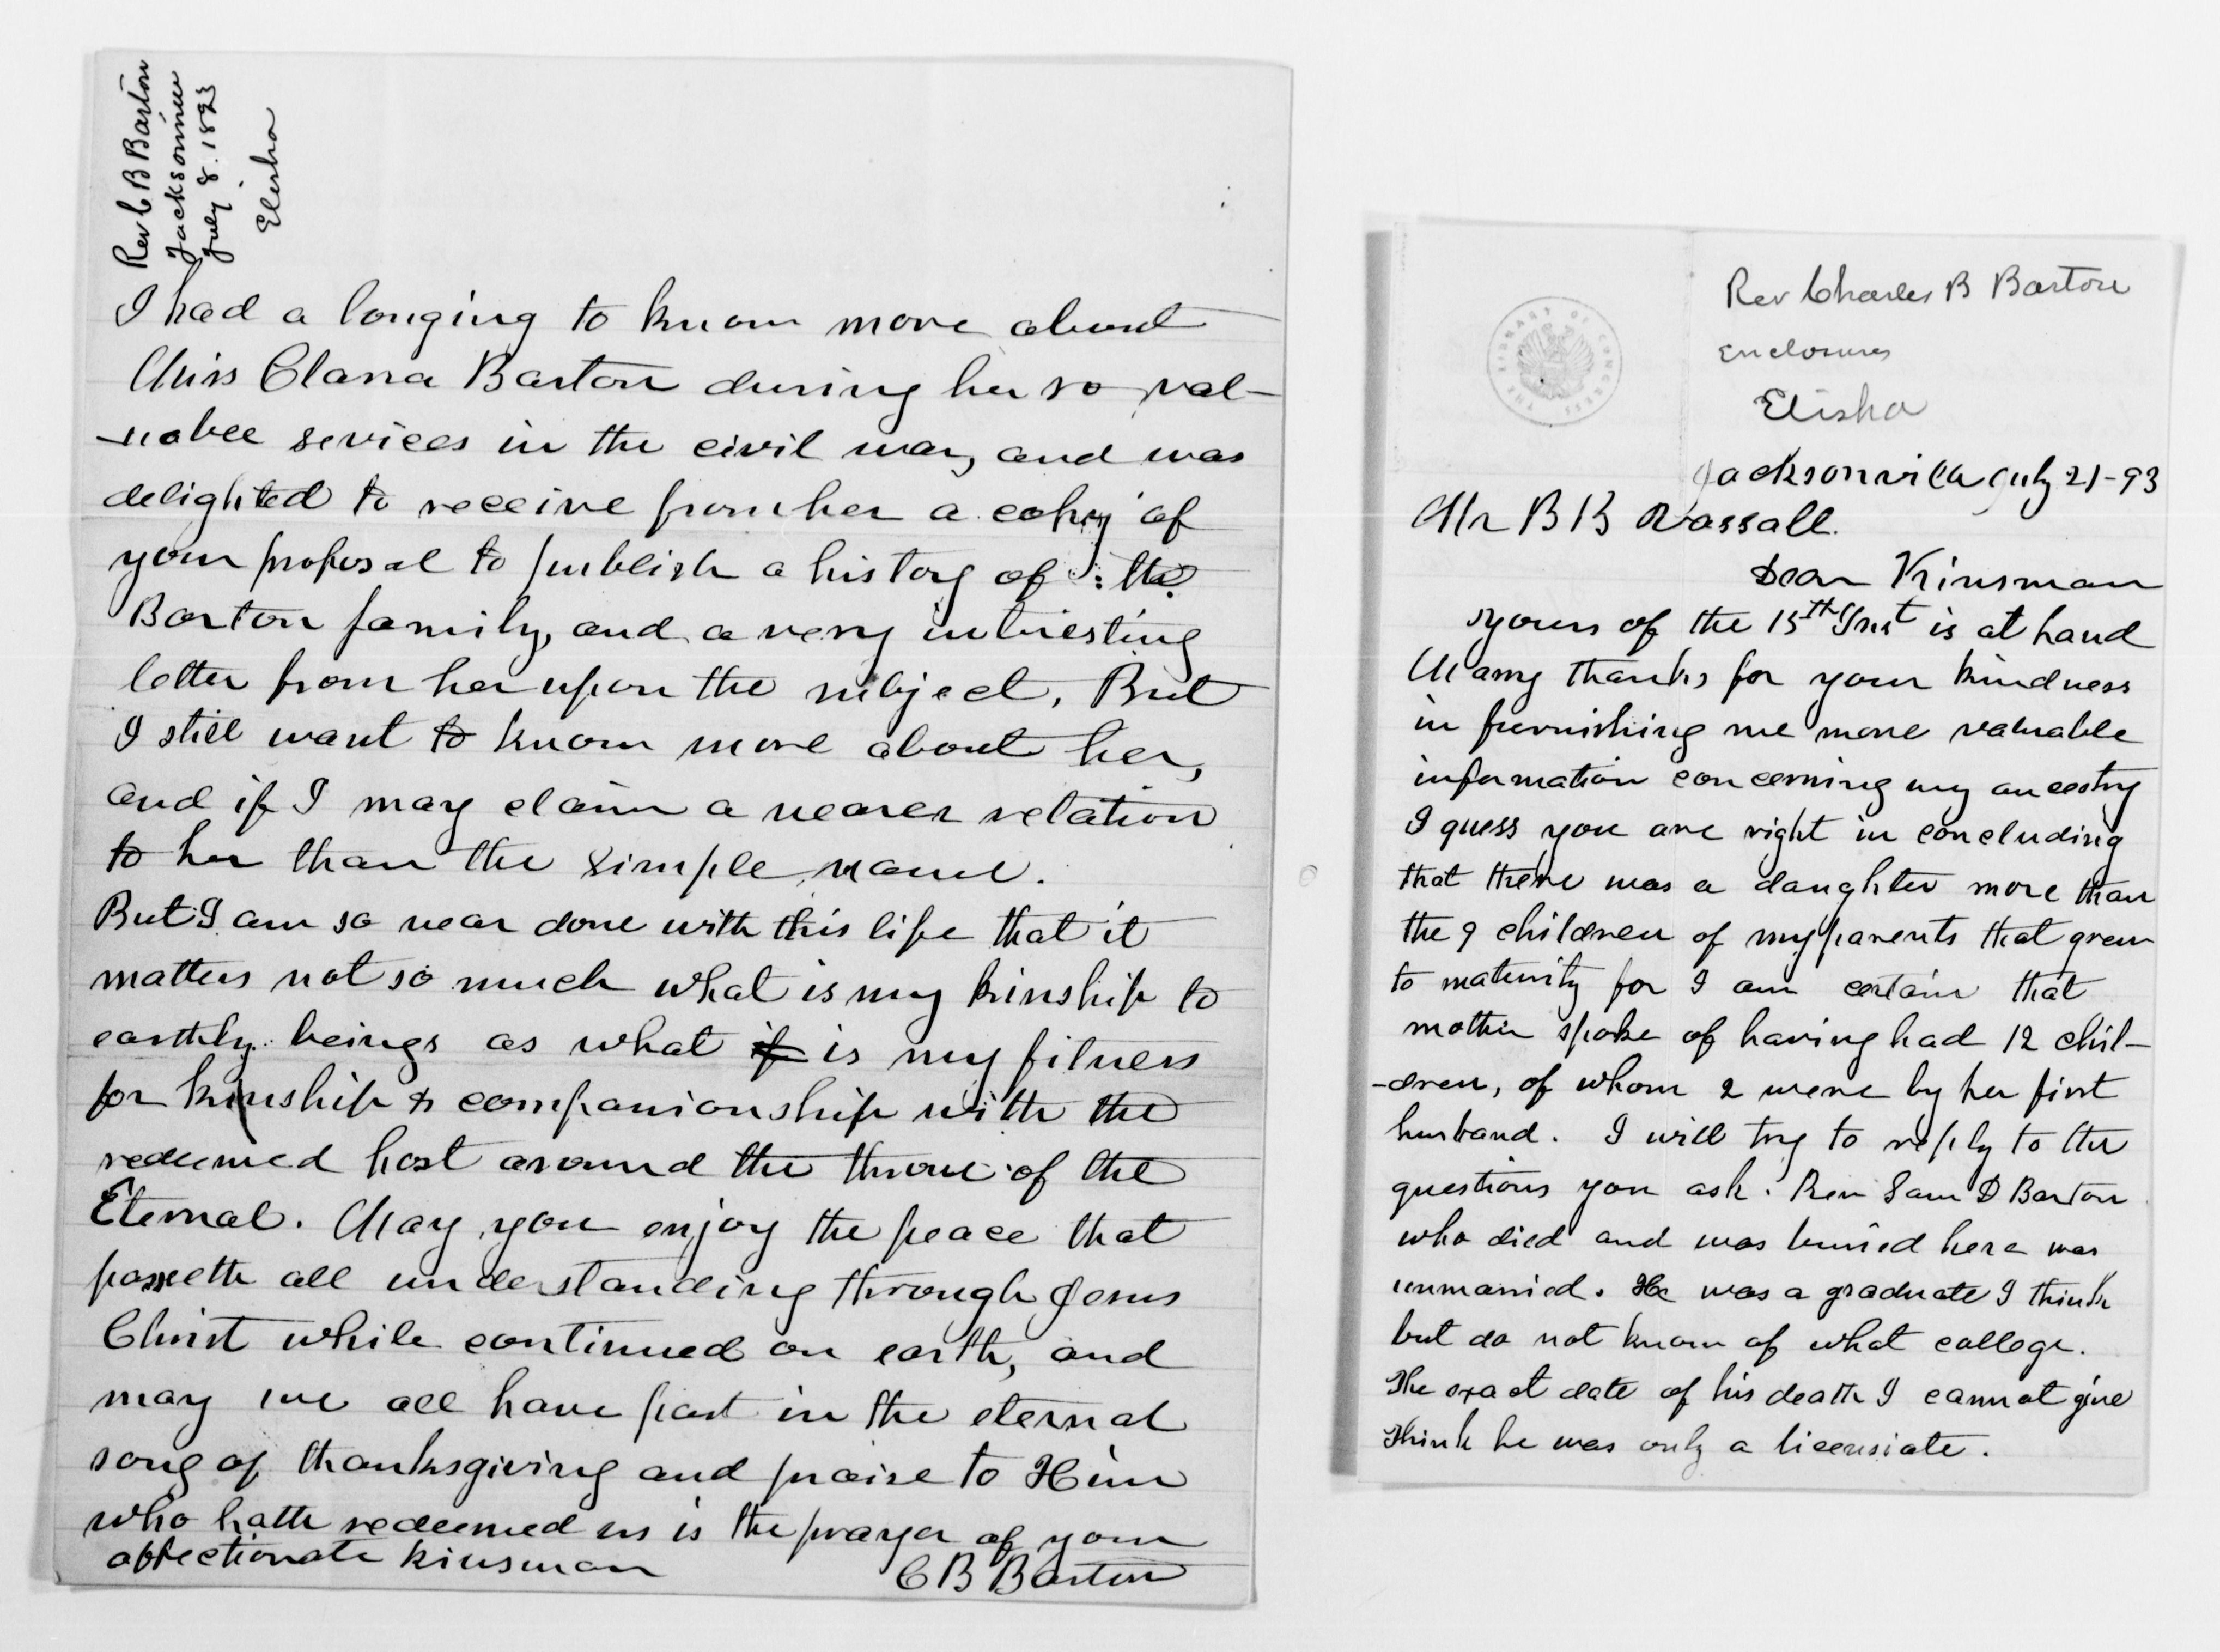 Rev C B Barton
Jacksonville
July 8. 1893
Elisha
I had a longing to know more about
Miss Clara Barton during her so val-
-uabee sevices in the civil war, and was
delighted to receive from her a copy of
your proposal to publish a history of the
Barton family, and a very intriesting
letter from her upon the subject. But
I still want to know more about her,
and if I may claim a nearer relation
to her than the simple name.
But I am so near done with this life that it
matters not so much what is my kinship to
earthly beings as what if is my fitness
for kinship & companionship with the
redeemed host around the throne of the
Eternal. May you enjoy the peace that
passeth all understanding through Jesus
Christ while continued on earth, and
may we all have part in the eternal
song of thanksgiving and praise to Him
who hath redeemed us is the prayer of your
affectionate kinsman C B Barton
THE LIBRARY OF CONGRESS
Rev Charles B Barton
Enclosures
Elisha
Jacksonville July 21-93
Mr B B Vassall.
Dear Kinsman
Yours of the 15th Inst is at hand
Many thanks for your kindness
in furnishing me more valuable
information concerning my ancestry
I guess you are right in concluding
that there was a daughter more than
the 9 children of my parents that grew
to maturity for I am certain that
mother spoke of having had 12 chil-
-dren, of whom 2 were by her first
husband. I will try to reply to the
questions you ask. Rev Sam D Barton
who died and was buried here was
unmarried. He was a graduate I think
but do not know of what college.
The exact date of his death I cannot give
Think he was only a licensiate.